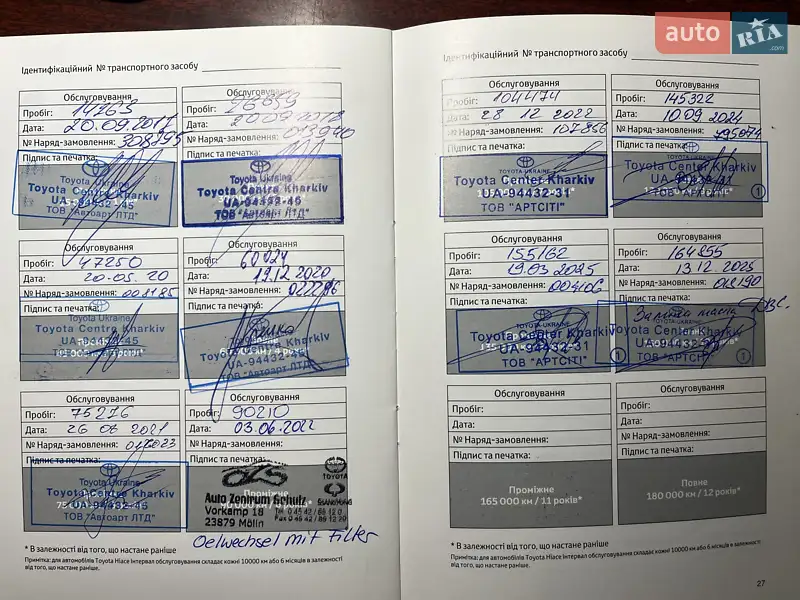 auto RIA.com
Ідентифікаційний № транспортного засобу
Обслуговування
Пробіг: 14763
Дата: 20.09.2017
№ Наряд-замовлення: 308995
Підпис та печатка:
Toyota Ukraine
Toyota Centre Kharkiv
UA-94432-45
ТОВ "Автоарт ЛТД"
Обслуговування
Пробіг:
Дата:
№ Наряд-замовлення: 013940
Підпис та печатка:
Toyota Ukraine
Toyota Centre Kharkiv
UA-94432-45
ТОВ "Автоарт ЛТД"
Обслуговування
Пробіг: 47250
Дата: 20.05.20
№ Наряд-замовлення:
Підпис та печатка:
Toyota Ukraine
Toyota Centre Kharkiv
UA-94432-45
ТОВ "Автоарт ЛТД"
Обслуговування
Пробіг: 60024
Дата: 19.12.2020
№ Наряд-замовлення:
Підпис та печатка:
Toyota Centre Kharkiv
UA-94432-45
ТОВ "Автоарт ЛТД"
Обслуговування
Пробіг: 75276
Дата: 26 08 2021
№ Наряд-замовлення:
Підпис та печатка:
Toyota Ukraine
Toyota Centre Kharkiv
UA-94432-45
ТОВ "Автоарт ЛТД"
Обслуговування
Пробіг: 90210
Дата: 03.06.2022
№ Наряд-замовлення:
Підпис та печатка:
TOYOTA
Проміжне
Auto Zentrum Schulz
Vorkamp 18
23879 Mölln
SSANGYONG
Oelwechsel mit Filter
* В залежності від того, що настане раніше
Примітка: для автомобілів Toyota Hiace Інтервал обслуговування складає кожні 10000 км або 6 місяців в залежності
від того, що настане раніше.
Ідентифікаційний № транспортного засобу
Обслуговування
Пробіг: 104474
Дата: 28 12 2022
№ Наряд-замовлення: 107856
Підпис та печатка:
TOYOTA UKRAINE
Toyota Center Kharkiv
UA-94432-31
ТОВ "АРТСІТІ"
Обслуговування
Пробіг: 145322
Дата: 10.09.2024
№ Наряд-замовлення:
Підпис та печатка:
TOYOTA UKRAINE
Toyota Center Kharkiv
ТОВ "АРТСІТІ"
1
Обслуговування
Пробіг: 155162
Дата: 19.03.2025
№ Наряд-замовлення:
Підпис та печатка:
TOYOTA UKRAINE
Toyota Center Kharkiv
UA-94432-31
ТОВ "АРТСІТІ"
1
Обслуговування
Пробіг: 164855
Дата: 13.12.2025
№ Наряд-замовлення:
Підпис та печатка: Заміна масла ДВС
Toyota Center Kharkiv
UA-94432-31
ТОВ "АРТСІТІ"
1
Обслуговування
Пробіг:
Дата:
№ Наряд-замовлення:
Підпис та печатка:
Проміжне
165 000 км / 11 років*
Обслуговування
Пробіг:
Дата:
№ Наряд-замовлення:
Підпис та печатка:
Повне
180 000 км / 12 років*
* В залежності від того, що настане раніше
Примітка: для автомобілів Toyota Hiace Інтервал обслуговування складає кожні 10000 км або 6 місяців в залежності
від того, що настане раніше.
27